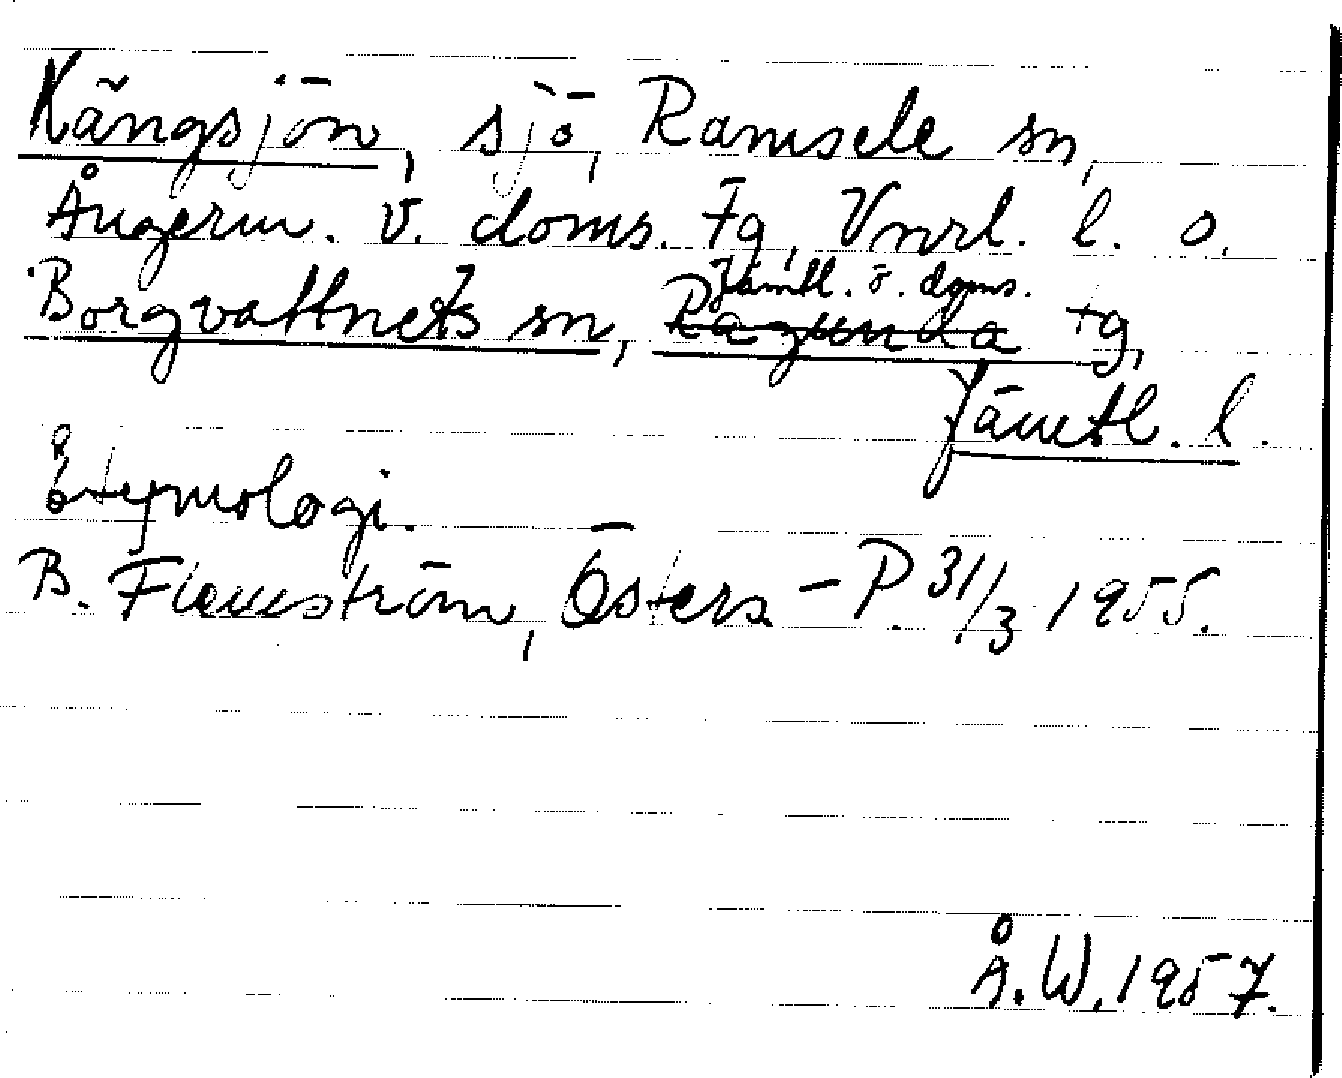 Kängsjön, sjö, Ramsele sn,
Ångerm. v. doms. tg, Vnrl. l. o.
Borgvattnets sn, Ragunda Jämtl. ö. doms. tg,
Jämtl. l.
Etymologi.
B. Flemström, Östers-P. 31/3 1955.
Å.W. 1957.